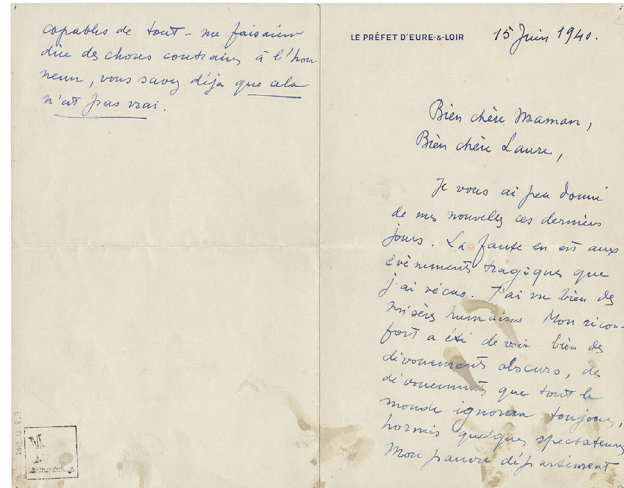 capables de tout - me faisaient
dire des choses contraires à l'hon
neur, vous savez déja que cela
n'est pas vrai.
LE PRÉFET D'EURE-&-LOIR
15 Juin 1940.
Bien chère Maman,
Bien chère Laure,
Je vous ai peu donné
de mes nouvelles ces derniers
jours. La faute en est aux
évènements tragiques que
j'ai vécus. J'ai vu bien des
misères humaines Mon récon-
fort a été de voir bien des
dévouements obscurs, des
dévouements que tout le
monde ignorera toujours,
hormis quelques spectateurs
Mon pauvre département